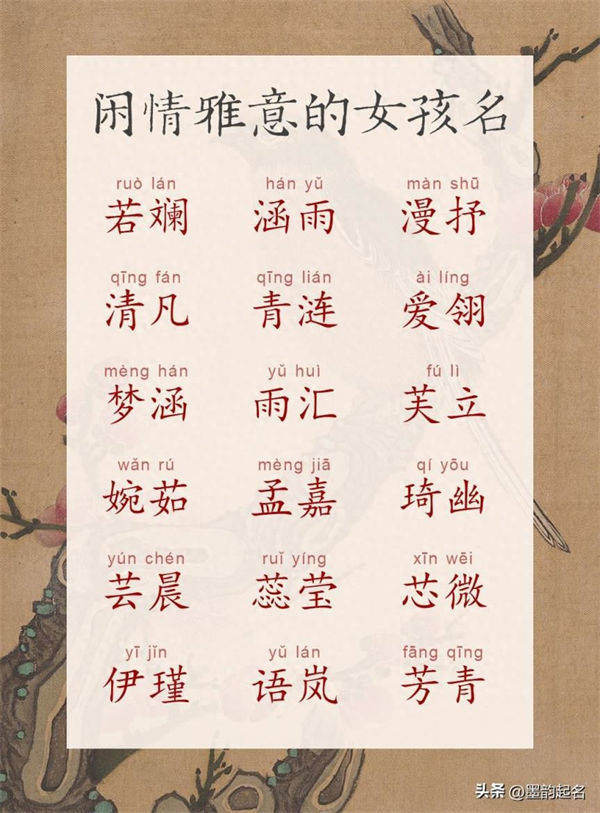 闲情雅意的女孩名
ruò lán hán yǔ màn shū
若斓 涵雨 漫抒
qīng fán qīng lián ài líng
清凡 青涟 爱翎
mèng hán yǔ huì fú lì
梦涵 雨汇 芙立
wǎn rú mèng jiā qí yōu
婉茹 孟嘉 琦幽
yún chén ruǐ yíng xīn wēi
芸晨 蕊莹 芯微
yī jǐn yǔ lán fāng qīng
伊瑾 语岚 芳青
头条 @墨韵起名